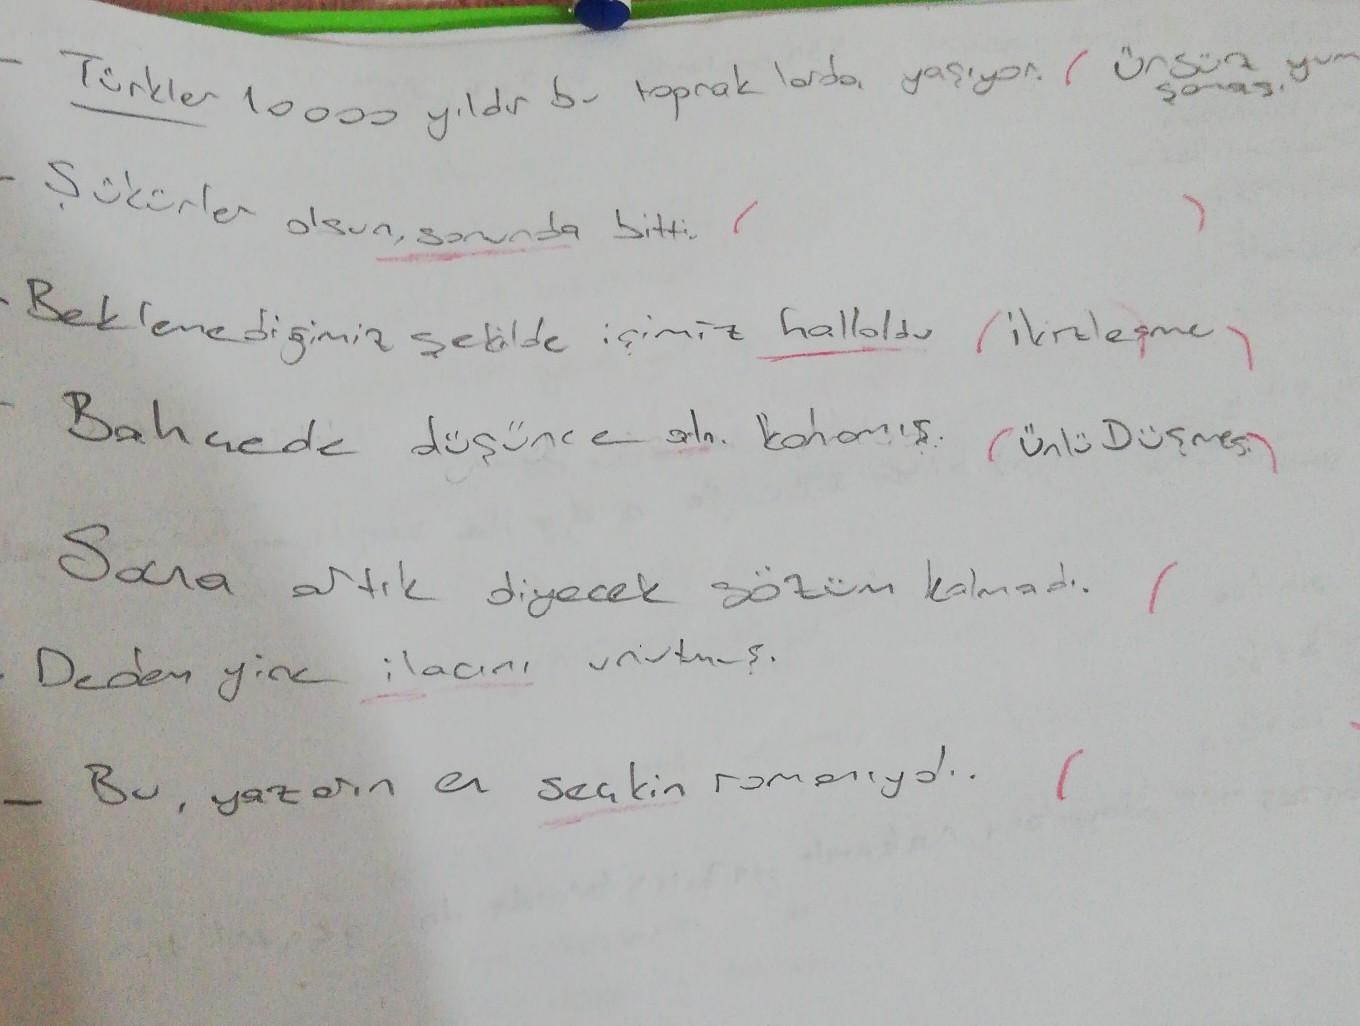 - Türkler 10000 yıldır bu topraklarda yaşıyor. ( Ünsüz yum
şaması
- Şükürler olsun, sonunda bitti. ( )
- Beklemediğimiz şekilde içimiz halloldu (ikizleşme)
- Bahçede düşünce aln. kanamış. (Ünlü Düşmesi)
Sana artık diyecek sözüm kalmadı. (
- Deden yine ilacını unutmuş.
- Bu, yazarın en seçkin romanıydı. (